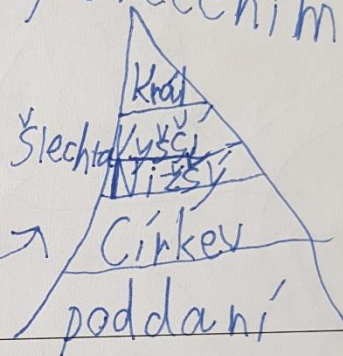 Král
Šlechta Vyšší
Nižší
Církev
poddaní